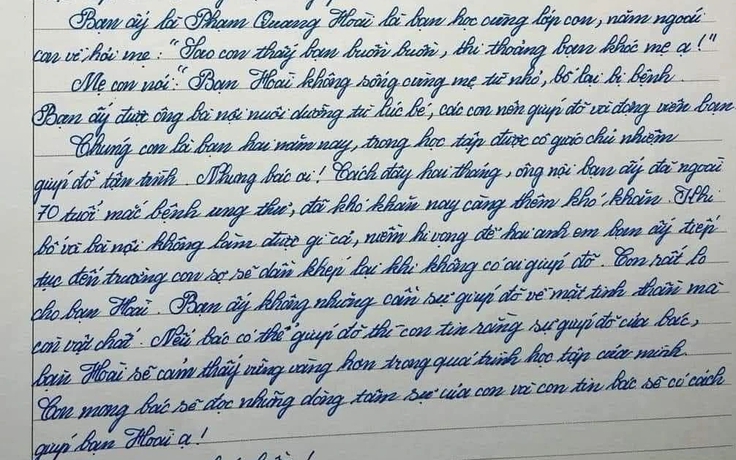 Bạn ấy là Phạm Quang Hoài là bạn học cùng lớp con, năm ngoái
con về hỏi mẹ: "Sao con thấy bạn buồn buồn, thi thoảng bạn khóc mẹ ạ!"
Mẹ con nói: "Bạn Hoài không sống cùng mẹ từ nhỏ, bố lại bị bệnh.
Bạn ấy được ông bà nội nuôi dưỡng từ lúc bé, các con nên giúp đỡ và động viên bạn
Chúng con là bạn hai năm nay, trong học tập được cô giáo chủ nhiệm
giúp đỡ tận tình. Nhưng bác ơi! Cách đây hai tháng, ông nội bạn ấy đã ngoài
70 tuổi mắc bệnh ung thư, đã khó khăn nay càng thêm khó khăn. Khi
bố và bà nội không làm được gì cả, niềm hi vọng để hai anh em bạn ấy tiếp
tục đến trường con sợ sẽ dần khép lại khi không có ai giúp đỡ. Con rất lo
cho bạn Hoài. Bạn ấy không những cần sự giúp đỡ về mặt tinh thần mà
còn vật chất. Nếu bác có thể giúp đỡ thì con tin rằng sự giúp đỡ của bác,
bạn Hoài sẽ cảm thấy vững vàng hơn trong quá trình học tập của mình.
Con mong bác sẽ đọc những dòng tâm sự của con và con tin bác sẽ có cách
giúp bạn Hoài ạ!